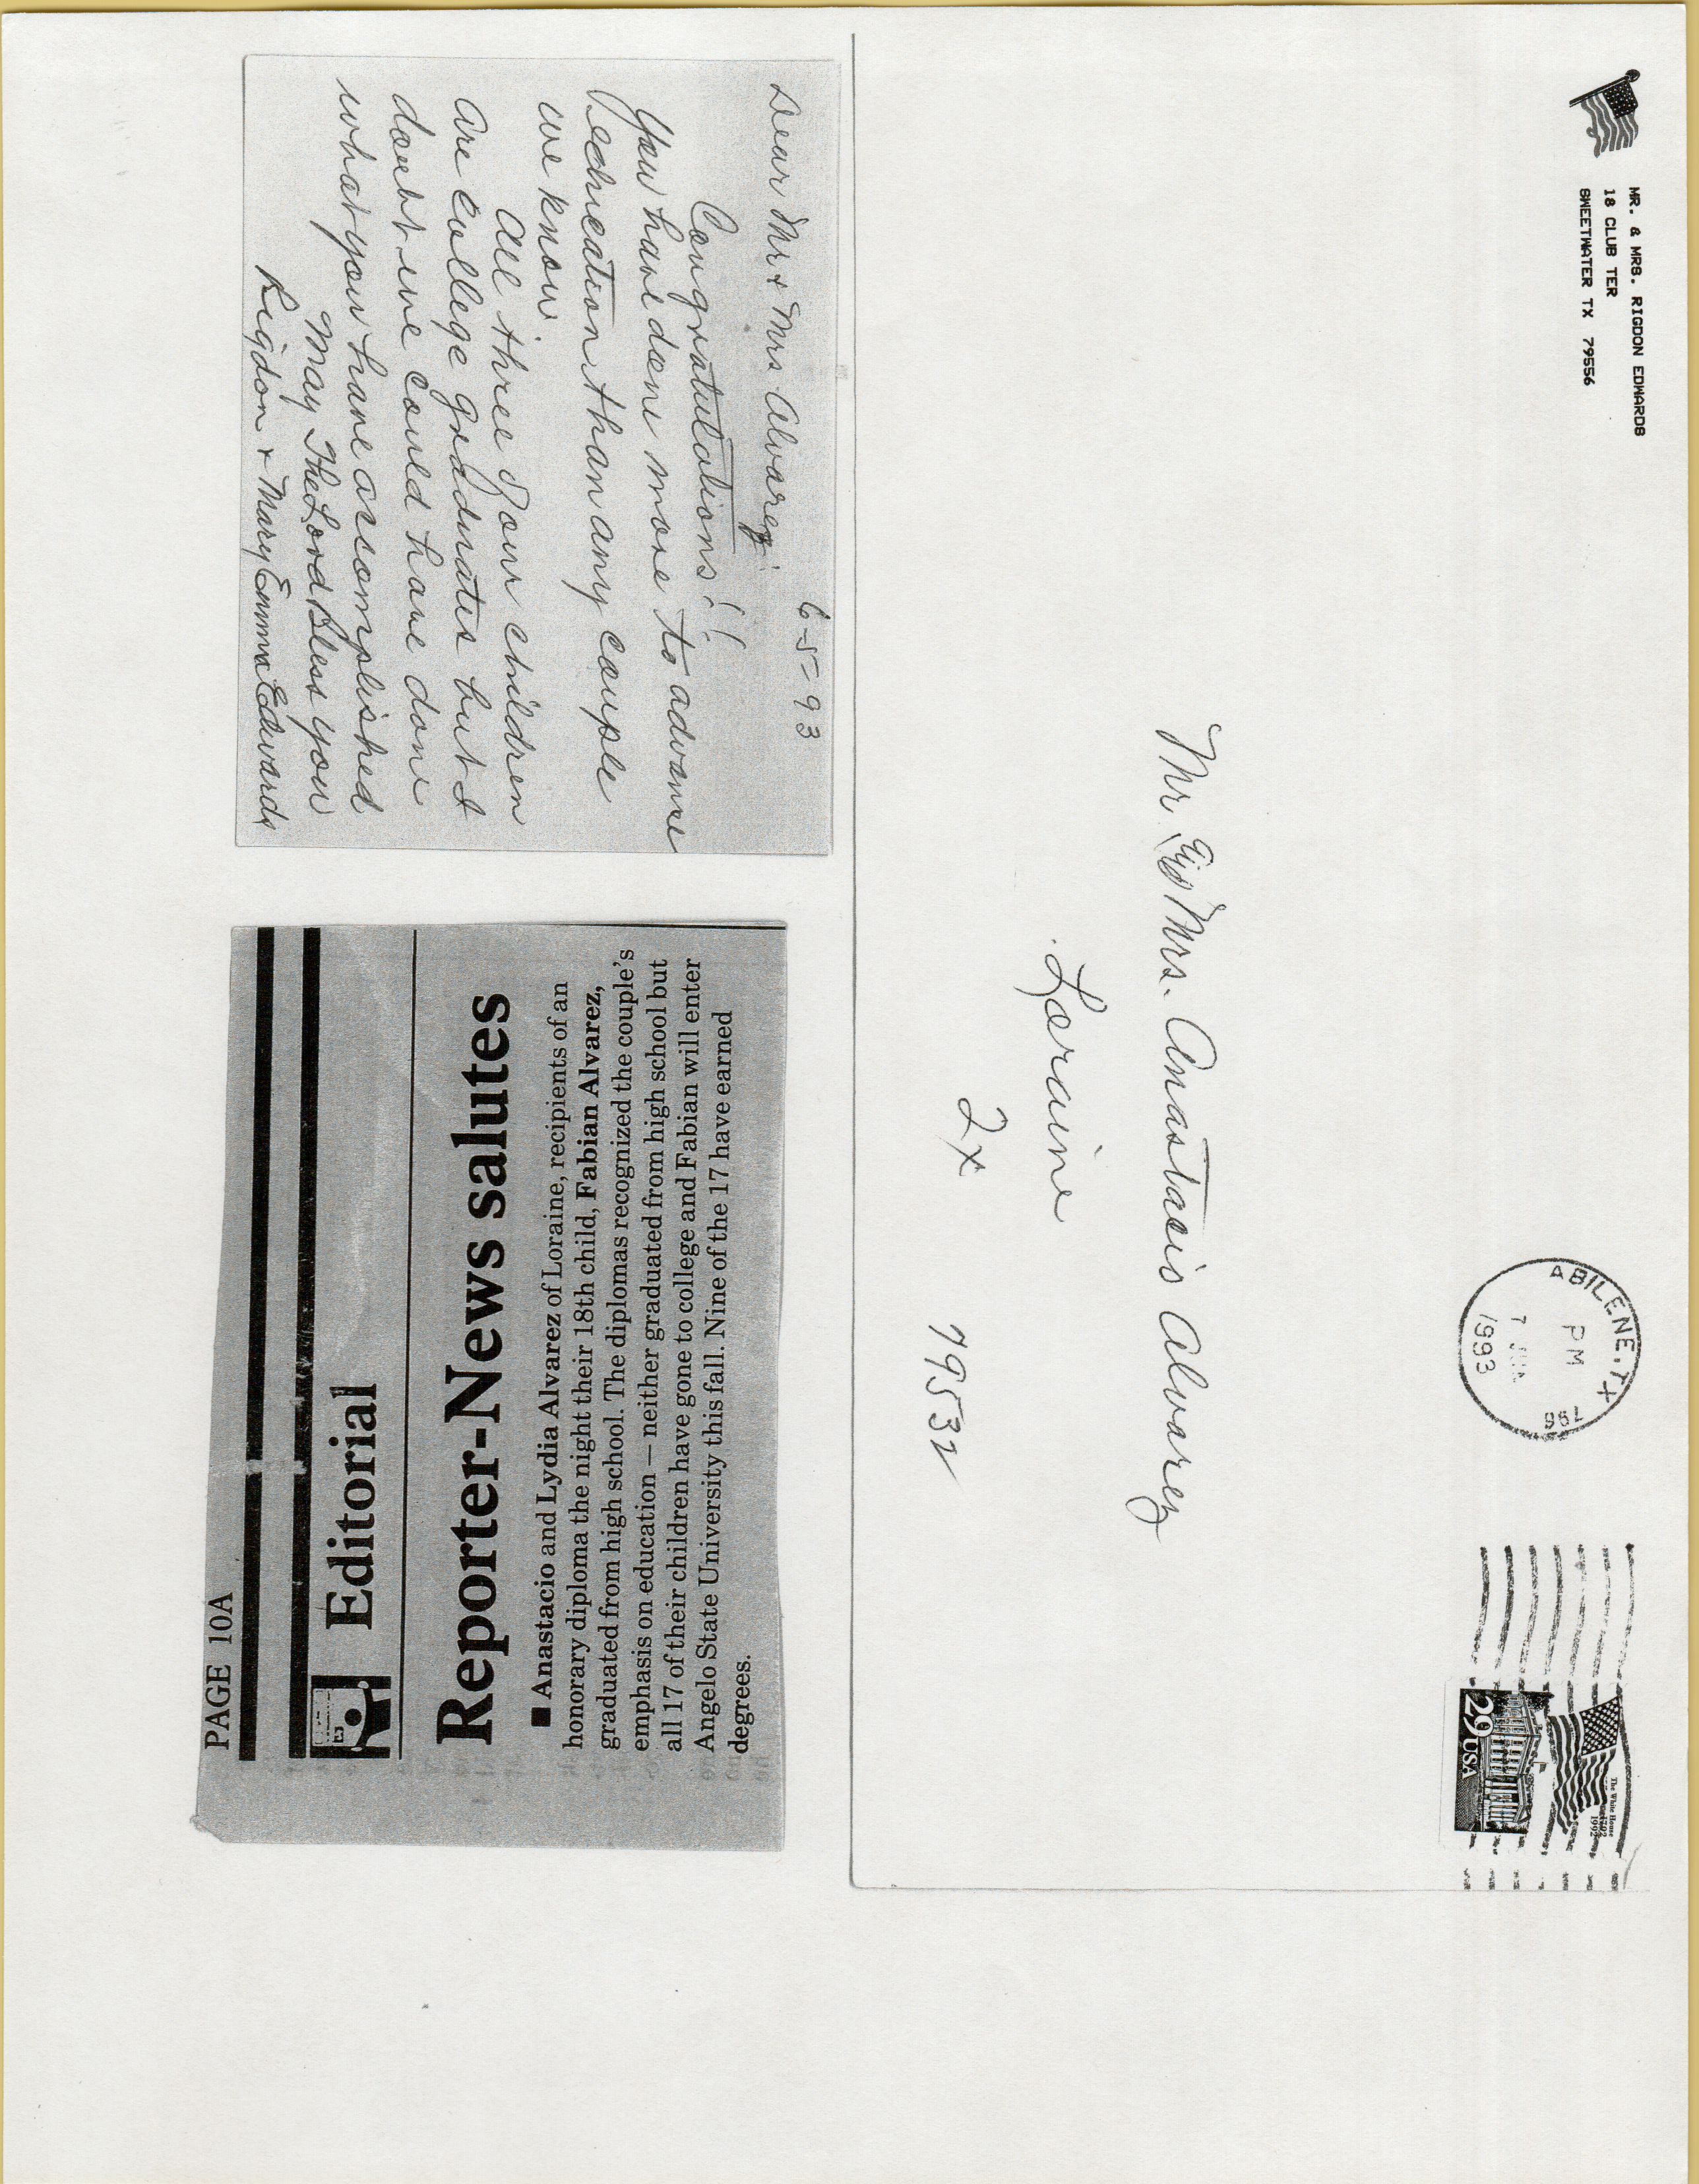 PAGE 10A
Editorial
Reporter-News salutes
■ Anastacio and Lydia Alvarez of Loraine, recipients of an
honorary diploma the night their 18th child, Fabian Alvarez,
graduated from high school. The diplomas recognized the couple's
emphasis on education — neither graduated from high school but
all 17 of their children have gone to college and Fabian will enter
Angelo State University this fall. Nine of the 17 have earned
degrees.
6-5-93
Dear Mr + Mrs Alvarez:
Congratulations!!
You have done more to advance
education than any couple
we know.
All three of our children
are College graduates but I
doubt we could have done
what you have accomplished
May The Lord Bless you
Rigdon + Mary Emma Edwards
MR. & MRS. RIGDON EDWARDS
18 CLUB TER
SWEETWATER TX 79556
ABILENE, TX 795
PM
7 JUN
1993
The White House
1792
1992
29 USA
Mr and Mrs. Anastacio Alvarez
Loraine
Tx 79532